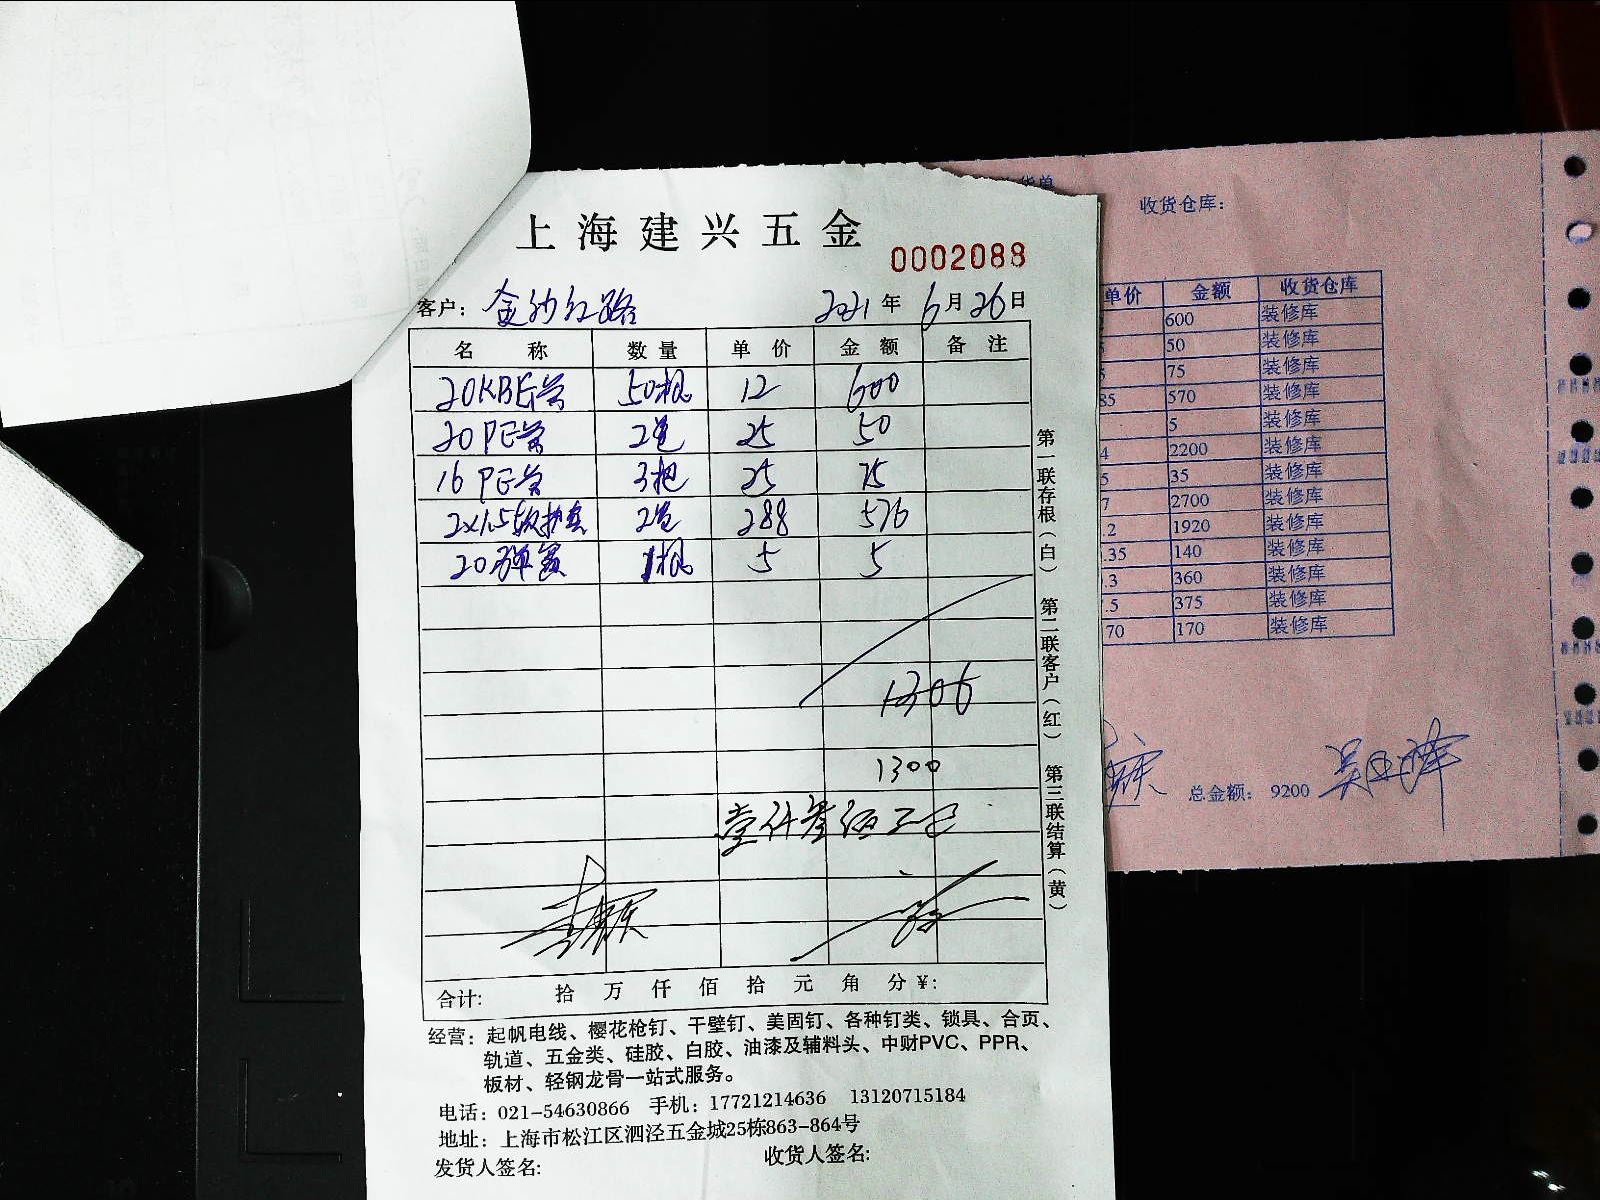 上海建兴五金
0002088
客户: 金沙江路 2021年6月26日
名称 数量 单价 金额 备注
20KBG管 50根 12 600
20PE管 2包 25 50
16PE管 3把 25 75
2×1.5 288 576
20弹簧 1根 5 5
1306
1300
壹仟叁佰元
合计: 拾 万 仟 佰 拾 元 角 分 ¥:
经营: 起帆电线、樱花枪钉、干壁钉、美固钉、各种钉类、锁具、合页、
轨道、五金类、硅胶、白胶、油漆及辅料头、中财PVC、PPR、
板材、轻钢龙骨一站式服务。
电话: 021-54630866 手机: 17721214636 13120715184
地址: 上海市松江区泗泾五金城25栋863-864号
发货人签名: 收货人签名:
第一联存根(白) 第二联客户(红) 第三联结算(黄)
货单
收货仓库:
单价 金额 收货仓库
600 装修库
50 装修库
5 75 装修库
85 570 装修库
5 装修库
4 2200 装修库
5 35 装修库
7 2700 装修库
.2 1920 装修库
.35 140 装修库
.3 360 装修库
.5 375 装修库
70 170 装修库
总金额: 9200